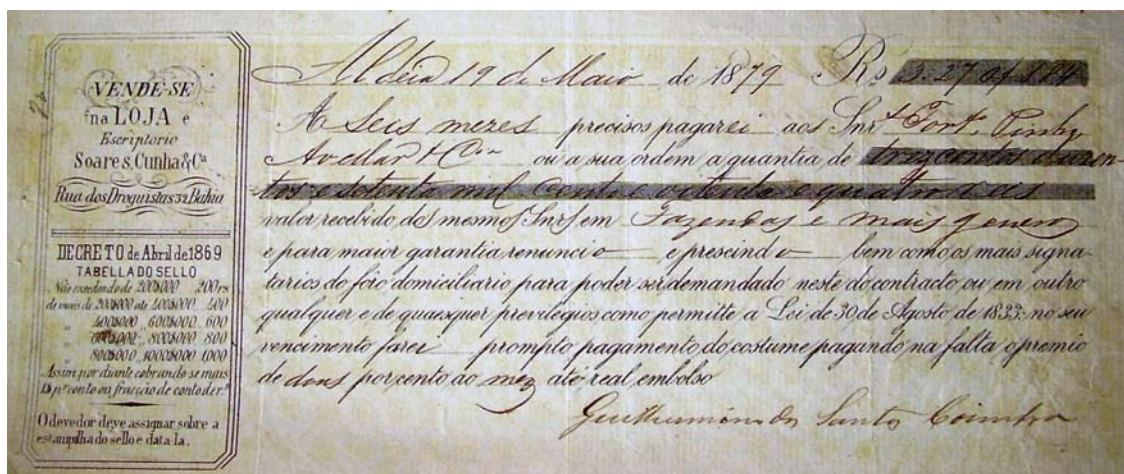 VENDE-SE
na LOJA e
Escriptorio
Soares, Cunha & Cª
Rua dos Droguistas 32 Bahia
DECRETO de Abril de 1869
TABELLA DO SELLO
Não excedendo de 200$000 200 rs
de mais de 200$000 até 400$000 400
" 400$000 600$000 600
" 600$000 800$000 800
" 800$000 1000$000 1000
Assim por diante cobrando-se mais
1$ pr conto ou fracção de conto de r.s
O devedor deve assignar sobre a
estampilha do sello e data-la.
Aldeia 19 de Maio de 1879 Rs 3:270$184
A Seis mezes precisos pagarei aos Snrs Fort. Pinho,
Avellar & Cia ou a sua ordem a quantia de trez contos duzen-
tos e setenta mil cento e oitenta e quatro reis
valor recebido dos mesmos Snrs em Fazendas e mais generos
e para maior garantia renuncio e prescindo bem como os mais signa-
tarios do foro domiciliario para poder ser demandado neste do contracto ou em outro
qualquer e de quaesquer previlegios como permitte a Lei de 30 de Agosto de 1833: no seu
vencimento farei prompto pagamento do costume pagando na falta o premio
de dous por cento ao mez até real embolso
dos Santos Coimbra